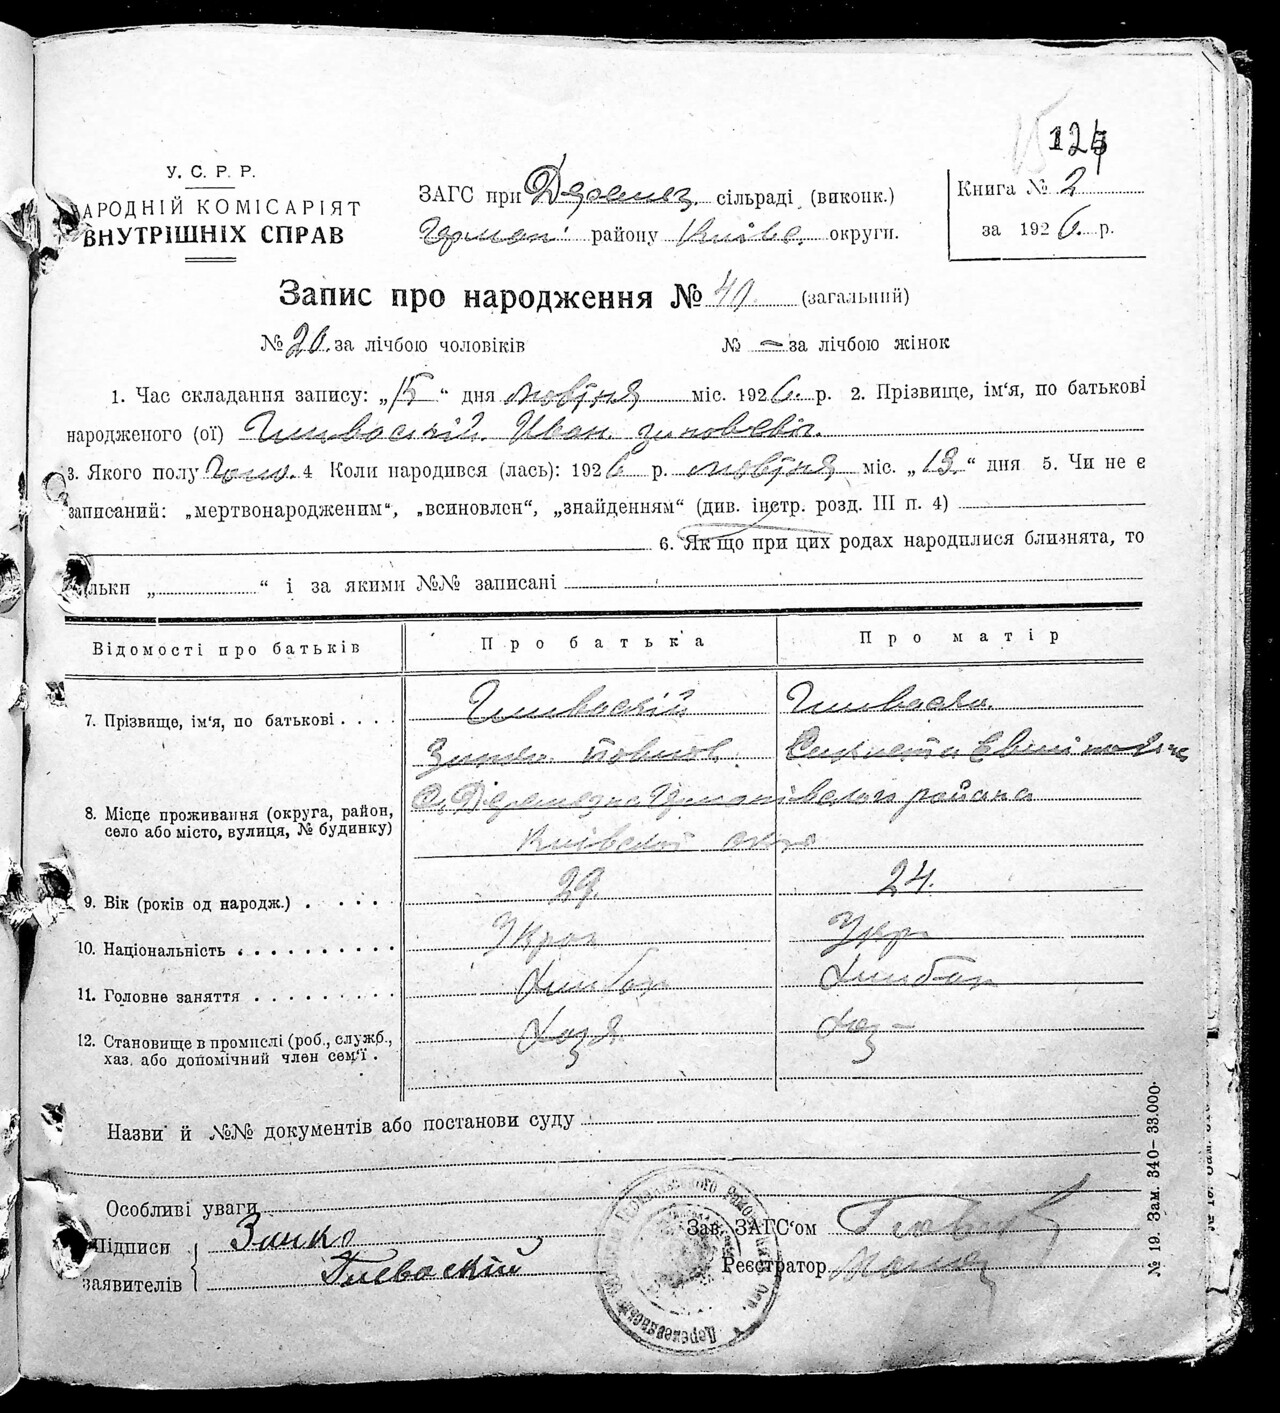 124
У. С. Р. Р.
НАРОДНІЙ КОМІСАРІЯТ
ВНУТРІШНІХ СПРАВ
ЗАГС при сільраді (виконк.)
району Київс. округи.
Книга № 2
за 1926. р.
Запис про народження № 40 (загальний)
№ 20. за лічбою чоловіків № – за лічбою жінок
1. Час складання запису: „15“ дня жовтня міс. 1926. р. 2. Прізвище, ім‘я, по батькові
народженого (ої) Гливаський Иван Зиновєвіч.
3. Якого полу Чолов. 4 Коли народився (лась): 1926 р. жовтня міс. „13“ дня 5. Чи не є
записаний: „мертвонародженим“, „всиновлен“, „знайденням“ (див. інстр. розд. III п. 4)
6. Як що при цих родах народилися близнята, то
скільки „ “ і за якими №№ записані
Відомості про батьків Про батька Про матір
7. Прізвище, ім‘я, по батькові . . . . Гливаський Гливаська
8. Місце проживання (округа, район,
село або місто, вулиця, № будинку)
Київської окр.
9. Вік (років од народж.) . . . . . 29. 24.
10. Національність . . . . . . . . . . Укра Укр
11. Головне заняття . . . . . . . . . Хлибор Хлибор
12. Становище в промислі (роб., служб.,
хаз. або допомічний член сем‘ї . Хазя. Хаз–
Назви й №№ документів або постанови суду
Особливі уваги
Підписи
заявителів
Зинко
Гливаский
Зав. ЗАГС‘ом
Реєстратор
№ 19. Зам. 340– 33.000.